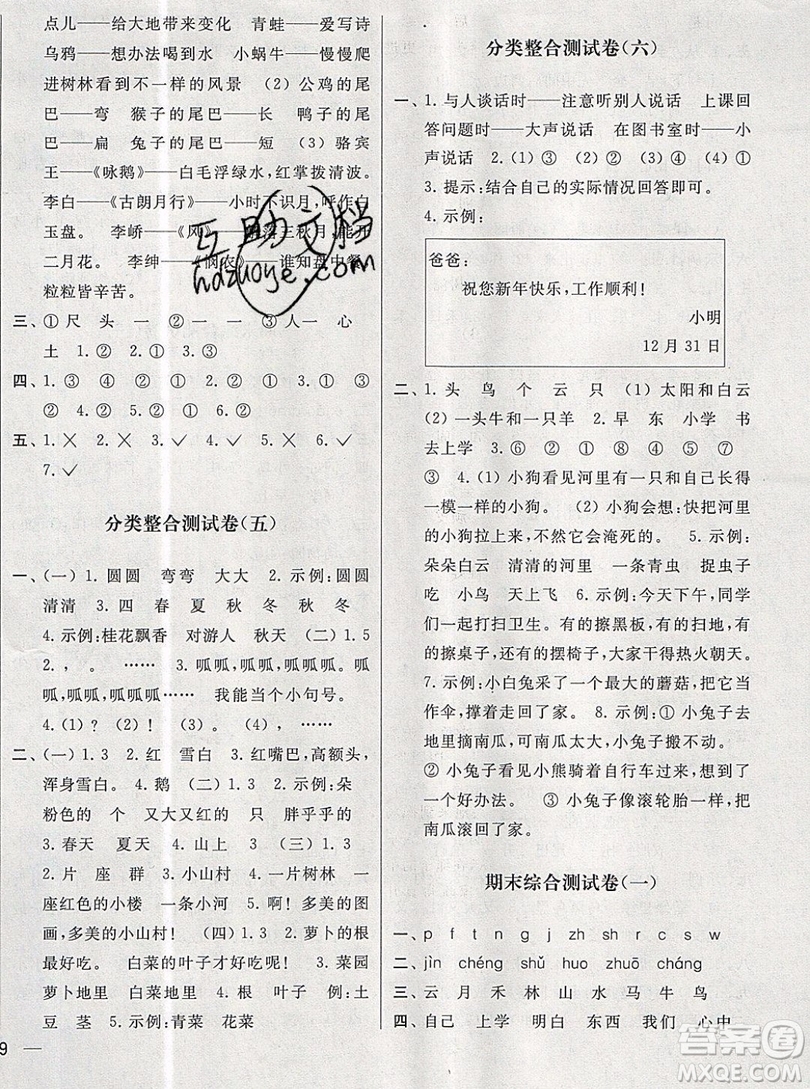 点儿——给大地带来变化　青蛙——爱写诗
乌鸦——想办法喝到水　小蜗牛——慢慢爬
进树林看到不一样的风景　(2)公鸡的尾
巴——弯　猴子的尾巴——长　鸭子的尾
巴——扁　兔子的尾巴——短　(3)骆宾
王——《咏鹅》——白毛浮绿水,红掌拨清波。
李白——《古朗月行》——小时不识月,呼作白
玉盘。　李峤——《风》——解落三秋月,能开
二月花。　李绅——《悯农》——谁知盘中餐,
粒粒皆辛苦。
三、①尺　头　一　②一　一　③人　一　心
土　1.②　2.①　3.③
四、1.③　④　②　①　2.③　①　③　①　③
②　4.②　5.②　①　③
五、1.✕　2.✕　3.✓　4.✓　5.✕　6.✓
7.✓
分类整合测试卷(五)
一、(一)1.圆圆　弯弯　大大　2.示例:圆圆
清清　3.四　春　夏　秋　冬　秋　冬
4.示例:桂花飘香　对游人　秋天　(二)1.5
2.,　。　……　3.呱呱,呱呱,呱呱。　呱
呱,呱呱,呱呱……　我能当个小句号。
4.(1)?　(2)!　(3)。　(4),　……
二、(一)1.3　2.红　雪白　3.红嘴巴,高额头,
浑身雪白。　4.鹅　(二)1.3　2.示例:朵
粉色的　个　又大又红的　只　胖乎乎的
3.春天　夏天　4.山上　3　(三)1.3
2.片　座　群　3.小山村　4.一片树林　一
座座的小楼　一条小河　5.示例:多美的图
画,多美的小山村!　(四)1.3　2.萝卜的根
最好吃。　白菜的叶子才最好吃。　3.菜园
萝卜地里　白菜地里　4.根　叶子　例:土
豆　茎　5.示例:青菜　花菜
9 —
分类整合测试卷(六)
一、1.与人谈话时——注意听别人说话　上课回
答问题时——大声说话　在图书室时——小
声说话　2.(1)①　(2)②　(3)①　(4)②
3.提示:结合自己的实际情况回答即可。
4.示例:
爸爸:
祝您新年快乐,工作顺利!
小明
12月31日
二、1.头　鸟　个　云　只　(1)太阳和白云
(2)一头牛和一只羊　2.早　东　小学　书
去上学　3.⑥　②　①　⑧　④　⑦　⑤
③　4.(1)(√)小狗看见河里有一条和自己长得
一模一样的小狗。　(2)小狗会想:快把河里
的小狗拉上来,不然它会淹死的。　5.示例:
朵朵白云　清清的河里　一条青虫　捉虫子
吃　小鸟　天上飞　6.示例:今天下午,同学
们一起打扫卫生。有的擦黑板,有的扫地,有
的擦桌子,还有的摆椅子,大家干得热火朝天。
7.示例:小白兔采了一个大大的蘑菇,把它当
作伞,撑着走回了家。　8.示例:①小兔子去
地里摘南瓜,可南瓜太大了,小兔子搬不动。
②小兔子看见小熊骑着自行车过来,想到一
个好办法。　③小兔子像滚轮胎一样,把
南瓜滚回了家。
期末综合测试卷(一)
一、p　f　t　n　g　j　zh　sh　r　c　s　w
二、jìn　chéng　shǔ　huo　zhuō　cháng
三、云　月　禾　林　山　水　马　牛　鸟
四、自己　上学　明白　东西　我们　心中
互助文档
hazuoye.com